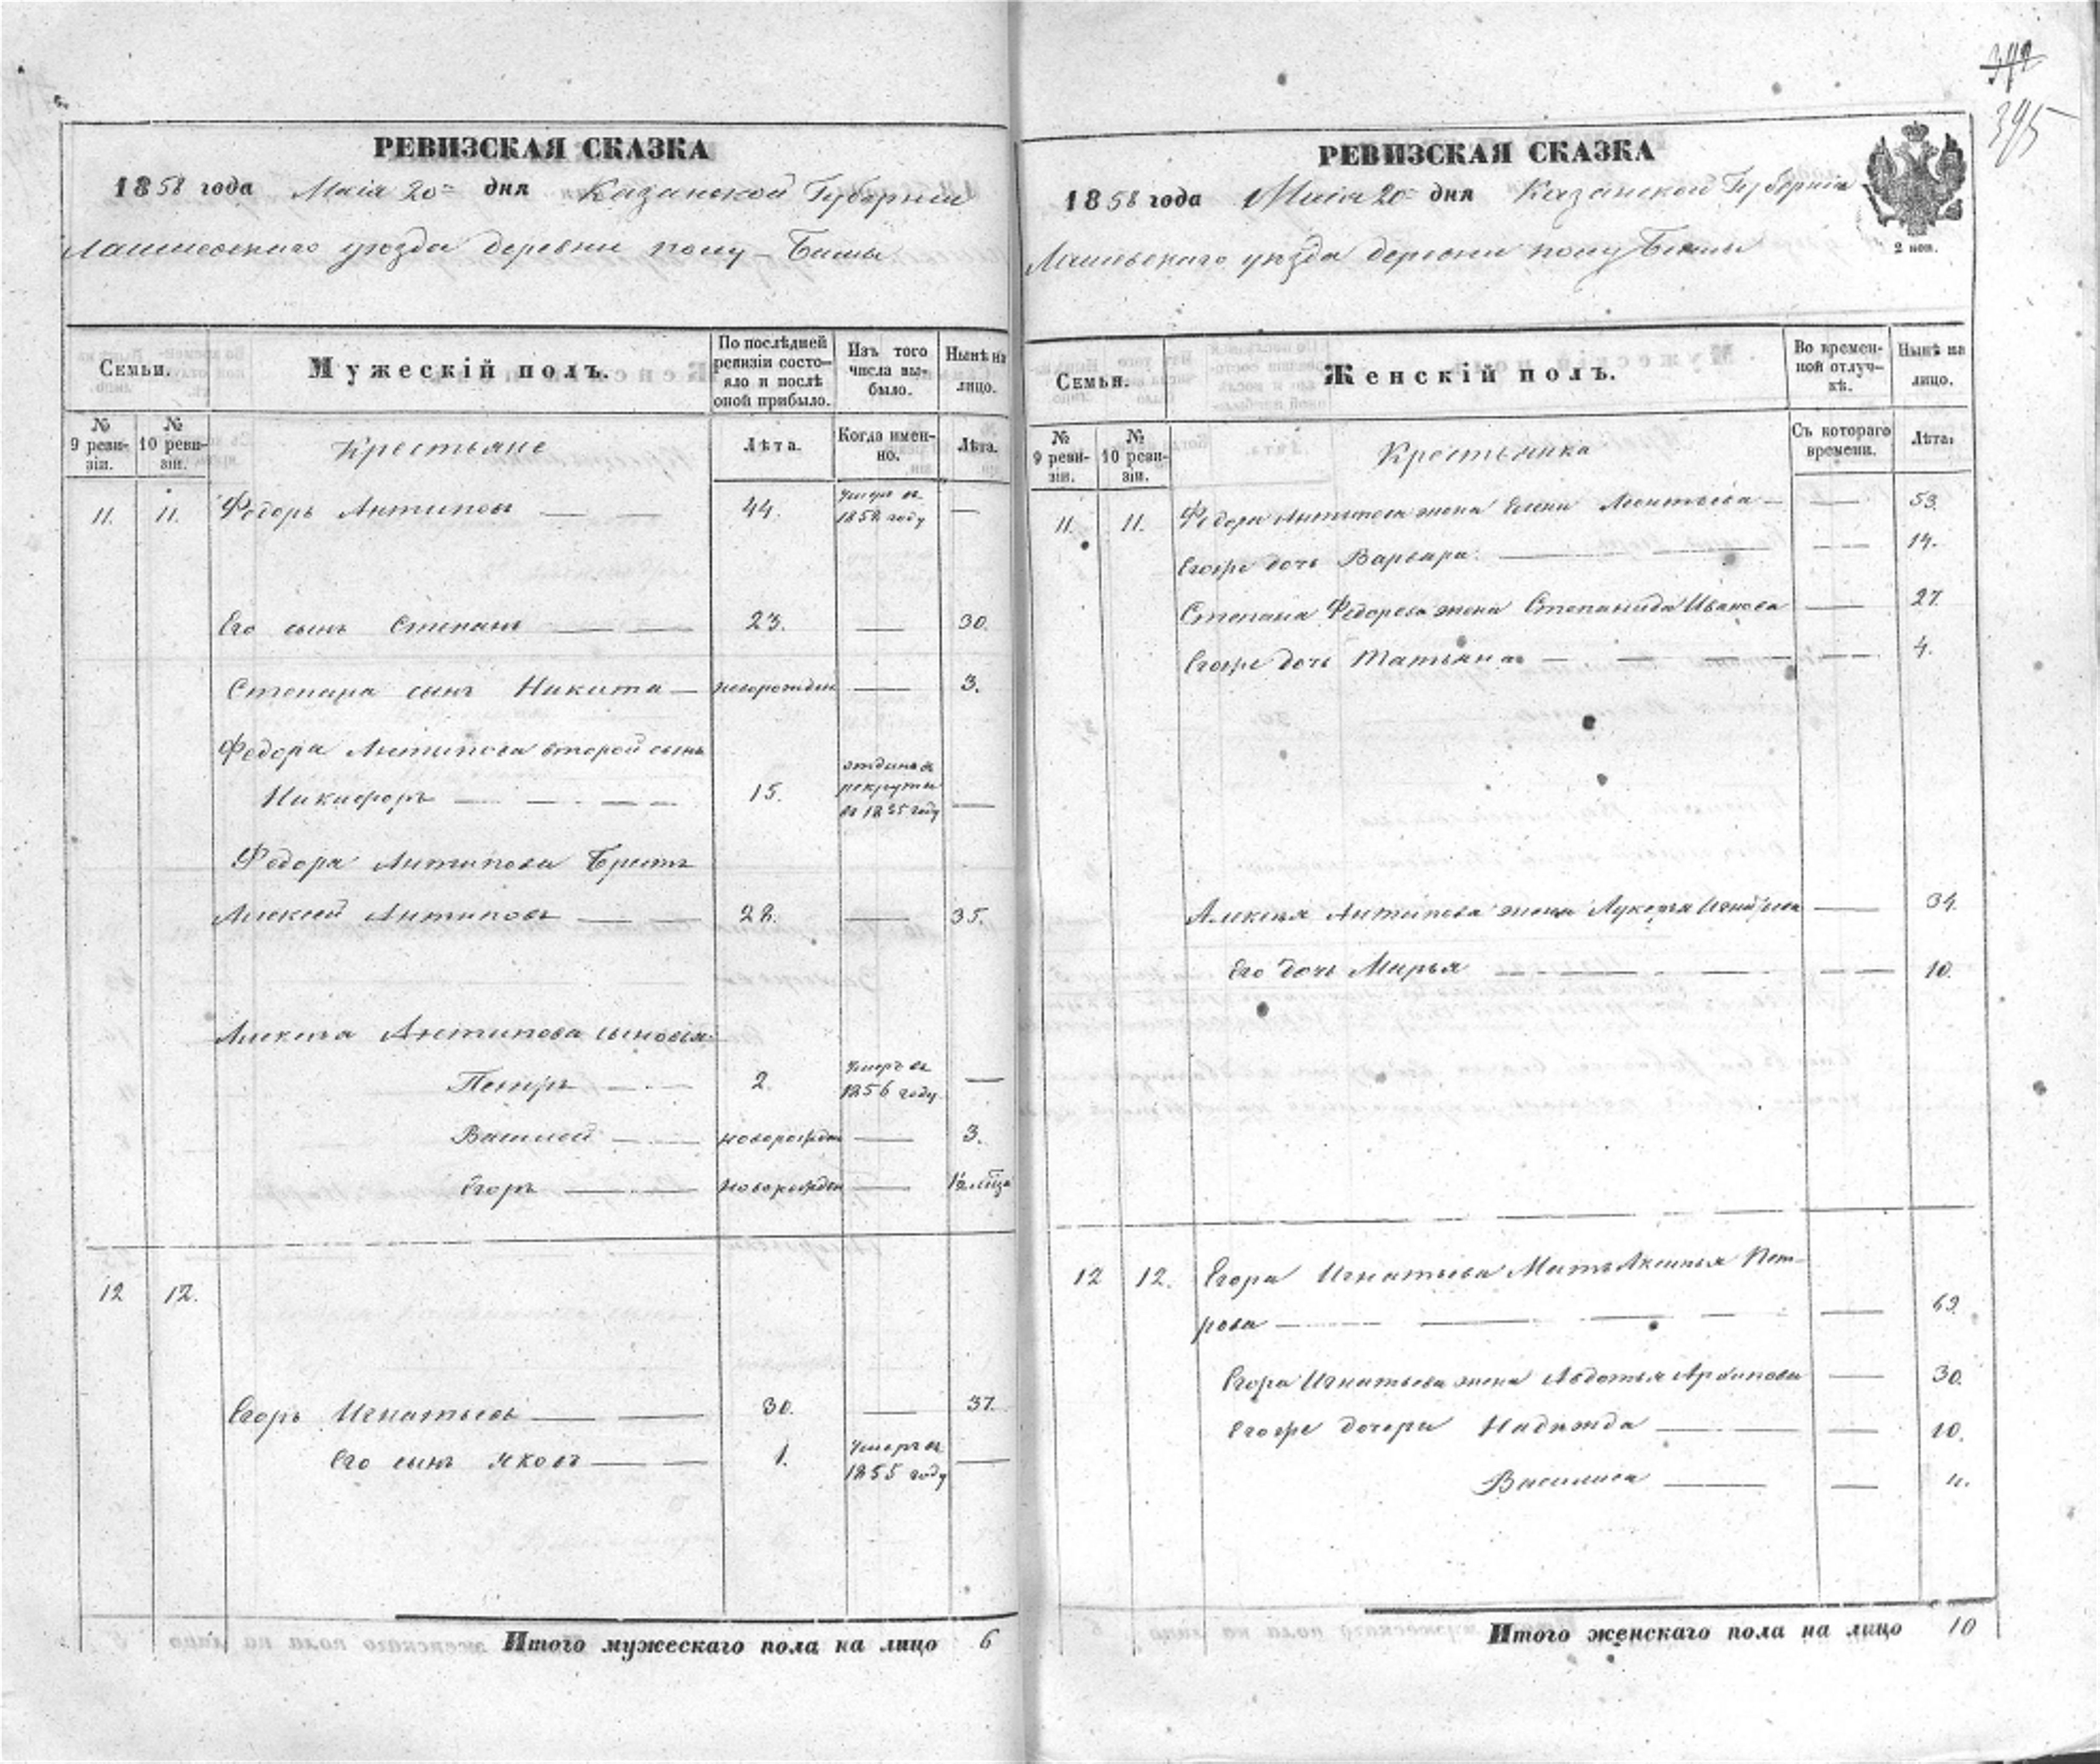 372
395
РЕВИЗСКАЯ СКАЗКА
1858 года Маія 20 дня Казанской Губерніи
Лаишевскаго уѣзда деревни полу-Бимы
Семьи.
Мужескій полъ.
По послѣдней ревизіи состояло и послѣ оной прибыло.
Изъ того числа выбыло.
Нынѣ на лицо.
№ 9 ревизіи.
№ 10 ревизіи.
Крестьяне
Лѣта.
Когда именно.
Лѣта.
11. 11. Федоръ Антиповъ — — 44. умеръ въ 1858 году —
Его сынъ Степанъ — — 23. — 30.
Степана сынъ Никита — новорожден — 3.
Федора Антипова второй сынъ
Никифоръ — — — — 15. отданъ въ рекруты въ 1855 году —
Федора Антипова Братъ
Алексей Антиповъ — — 28. — 35.
Алексѣя Антипова сыновья
Петръ — — 2. умеръ въ 1856 году —
Василей — — новорожден — 3.
Егоръ — — новорожден — 1/2
12 12.
Егоръ Игнатьевъ — — 30. — 37.
Его сынъ Яковъ — — 1. умеръ въ 1855 году —
Итого мужескаго пола на лицо 6
РЕВИЗСКАЯ СКАЗКА
1858 года Маія 20 дня Казанской Губерніи
2 коп.
Лаишевскаго уѣзда деревни полу Бимы
Семьи.
Женскій полъ.
Во временной отлучкѣ.
Нынѣ на лицо.
№ 9 ревизіи.
№ 10 ревизіи.
Крестьянка
Съ котораго времени.
Лѣта.
11. 11. Федора Антипова жена Елена Леонтьева — — 53.
Егоже дочь Варвара — — 14.
Степана Федорова жена Степанида Иванова — 27.
Егоже дочь Татьяна — — — — 4.
Алексѣя Антипова жена Лукерья — 34.
Его дочь Марья — — — — 10.
12 12. Егора Игнатьева Мать Аксинья Пет-
рова — — — — 69.
Егора Игнатьева жена Авдотья — 30.
Егоже дочери Надежда — — 10.
Василиса — — 4.
Итого женскаго пола на лицо 10